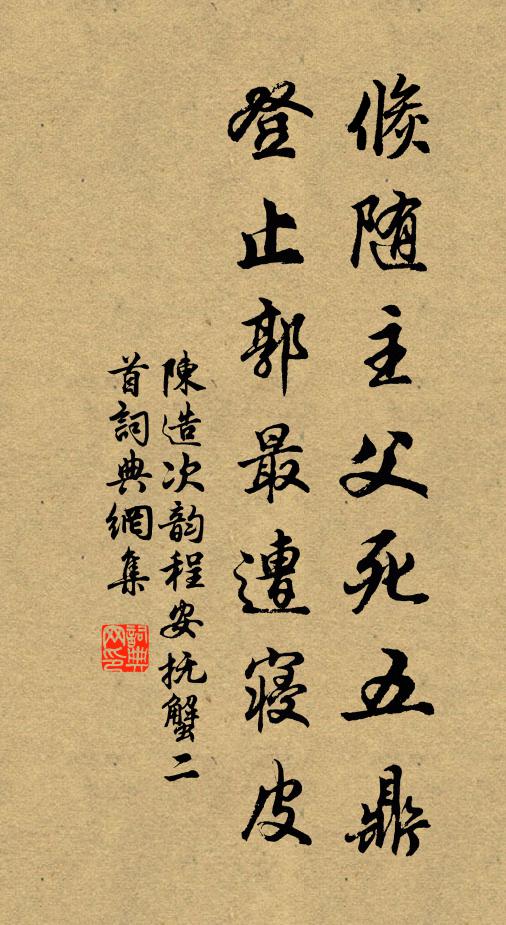 倏随主父死五鼎
登止郭最遭寝皮
陳造次韵程安抚蟹二
首詞典網集
詞典网印